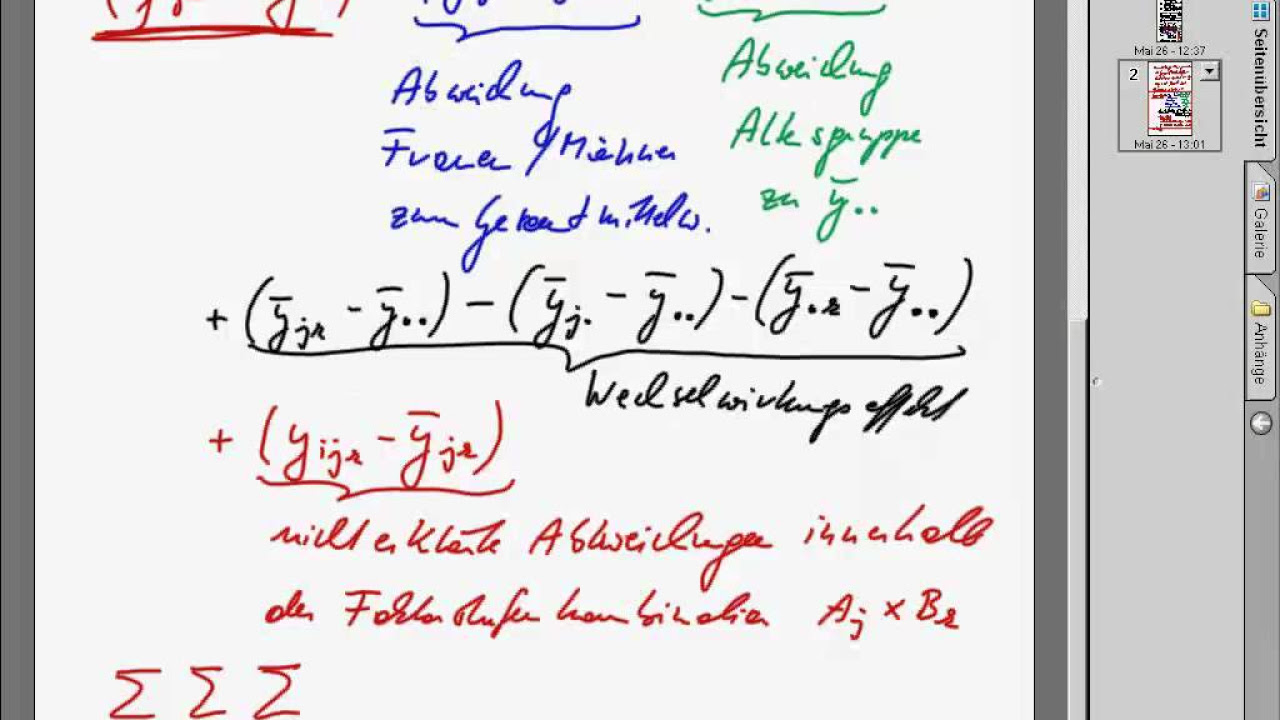 Abweichung
Frauen / Männer
zum Gesamtmittelw.
Abweichung
Altersgruppe
zu ȳ..
+ (ȳjr - ȳ..) - (ȳj. - ȳ..) - (ȳ.r - ȳ..)
Wechselwirkungseffekt
+ (yijr - ȳjr)
nicht erklärte Abweichungen innerhalb
der Faktorstufenkombination Aj × Br
Σ Σ Σ
Mai 26 - 12:37
2
Mai 26 - 13:01
Seitenübersicht
Galerie
Anhänge